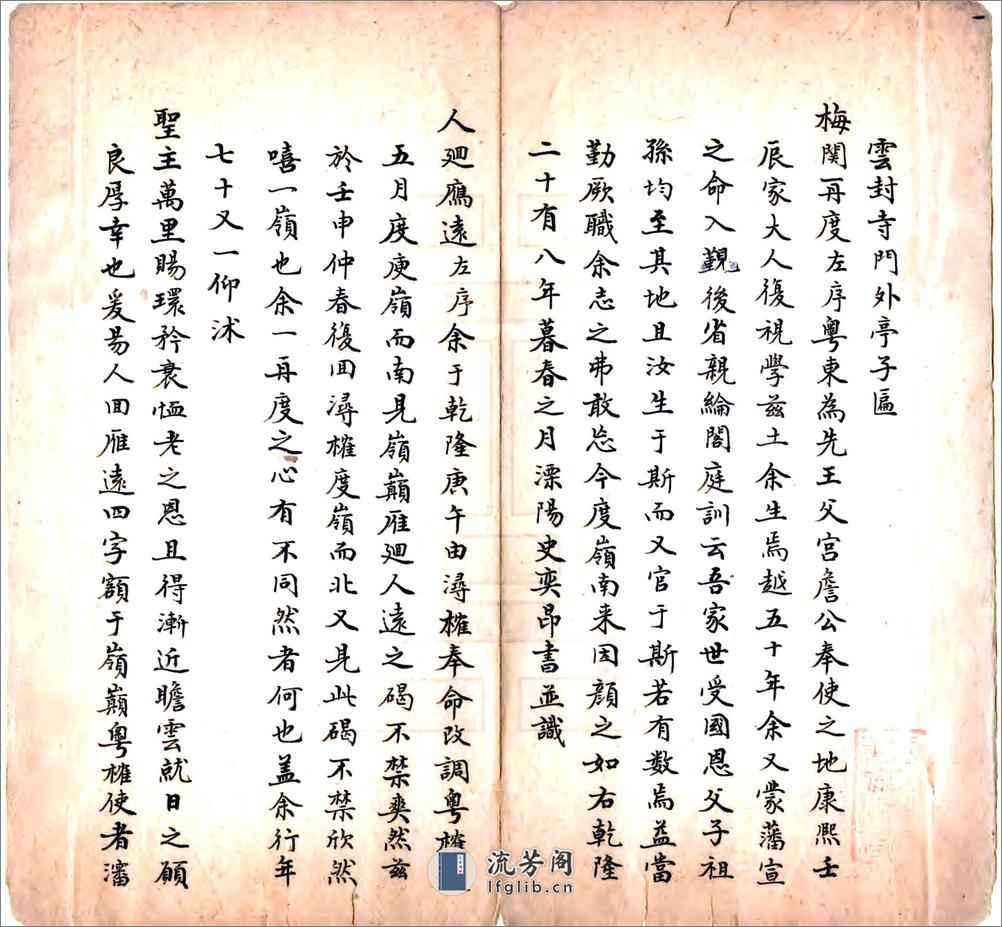 雲封寺門外亭子匾
梅関再度左序粵東為先王父宫詹公奉使之地康熙壬
辰家大人復視學兹土余生焉越五十年余又蒙藩宣
之命入覲後省親綸閣庭訓云吾家世受國恩父子祖
孫均至其地且汝生于斯而又官于斯若有数焉益當
勤厥職余志之弗敢忘今度嶺南来因顔之如右乾隆
二十有八年暮春之月溧陽史奕昂書並識
人廻鴈遠左序余于乾隆庚午由潯榷奉命改調粵榷
五月度庾嶺而南見嶺巔雁廻人遠之碣不禁爽然兹
於壬申仲春復回潯榷度嶺而北又見此碣不禁欣然
嘻一嶺也余一再度之心有不同然者何也盖余行年
七十又一仰沭
聖主萬里賜環矜衰恤老之恩且得漸近瞻雲就日之願
良厚幸也爰易人回雁遠四字額于嶺巔粵榷使者瀋
流芳阁
lfglib.cn